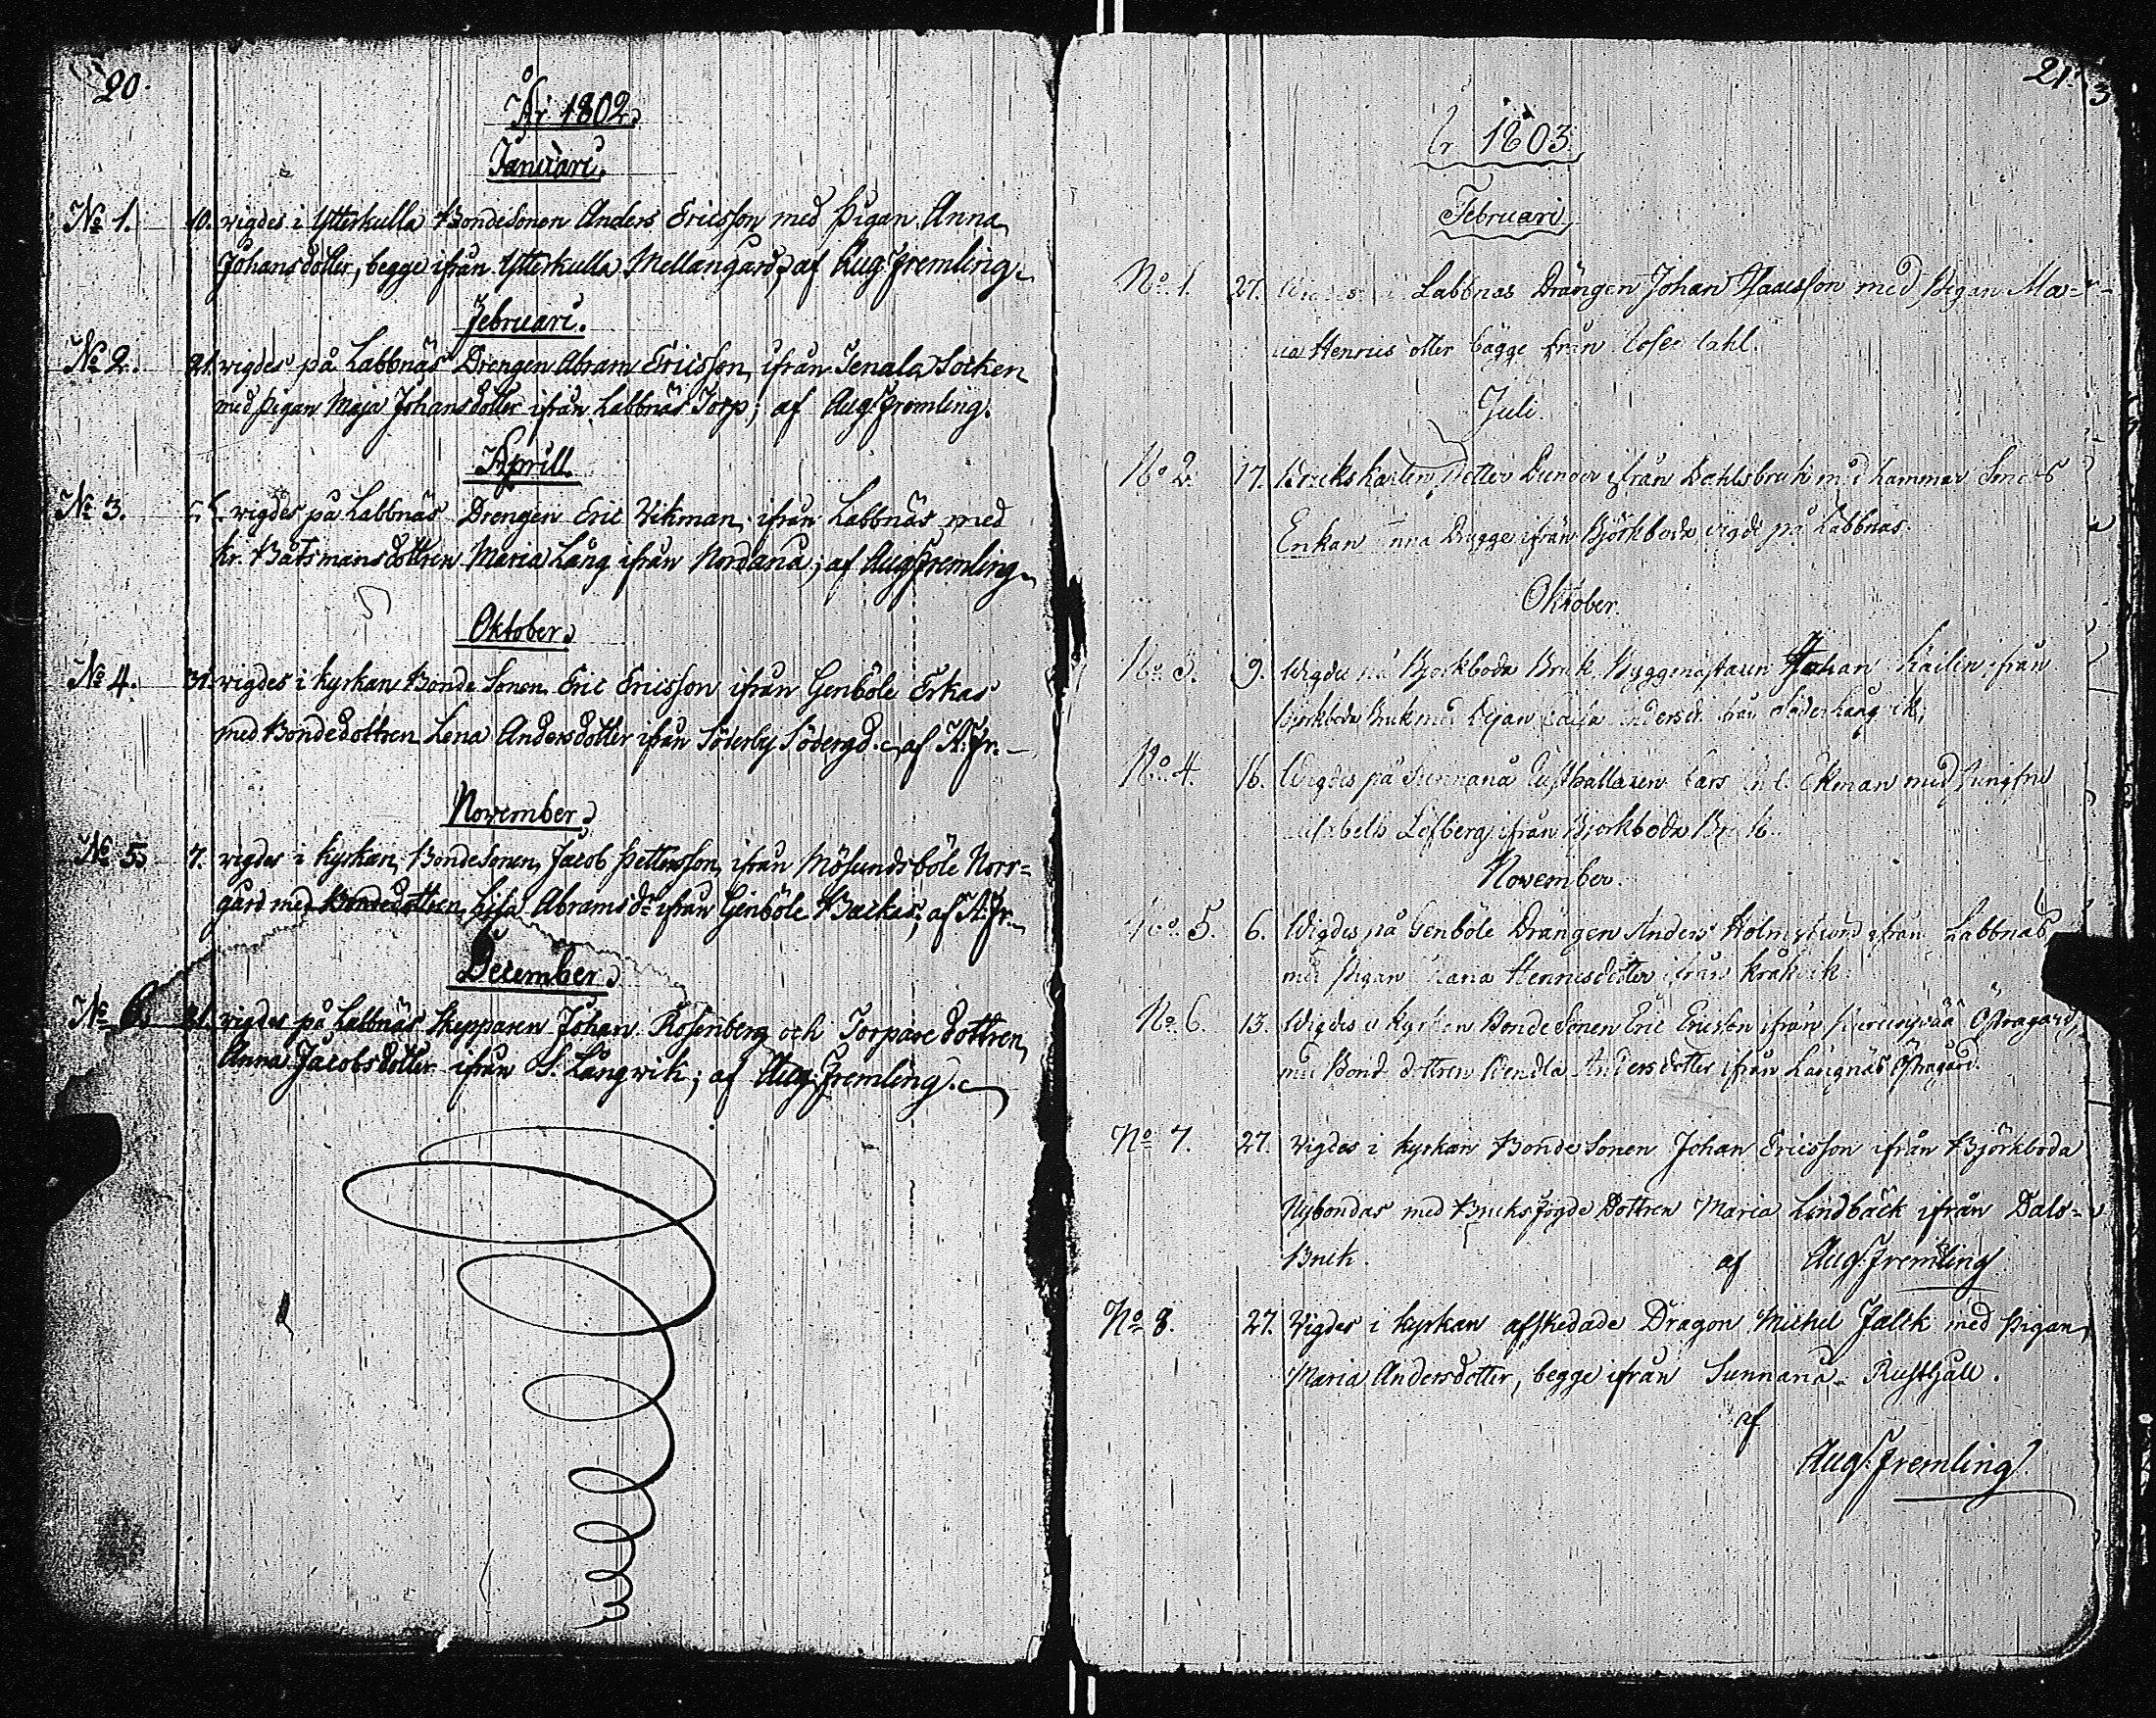 20.
År 1802.
Januari.
No 1. 10. vigdes i Ytterkulla BondeSonen Anders Ericsson med Pigan Anna
Johansdotter, begge ifrån Ytterkulla Mellangård; af Aug: Fremling.
Februari.
No 2. 21. vigdes på Labbnäs Drengen Abram Ericsson ifrån Tenala Socken
med Pigan Maja Johansdotter ifrån Labbnäs Torp; af Aug: Fremling.
Aprill.
No 3. vigdes på Labbnäs Drengen Eric Vikman ifrån Labbnäs med
Kr. Båtsmansdottren Maria Lång ifrån Nordanå; af Aug: Fremling.
Oktober.
No 4. 31. vigdes i kyrkan Bonde Sonen Eric Ericsson ifrån Genböle Erkas
med Bondedottren Lena Andersdotter ifrån Söderby Södergd. af A: Fr.
November.
No 5. 7. vigdes i kyrkan BondeSonen Jacob Pettersson ifrån Mösundsböle Norr-
gård med Bondedottren Lisa Abramsdr ifrån Genböle Backas; af A: Fr.
December.
No 6. 21. vigdes på Labbnäs Skepparen Johan Rosenberg och Torparedottren
Anna Jacobsdotter ifrån S. Långvik; af Aug: Fremling.
21.
1803
Februari
No 1. 27. i Labbnäs Drängen Johan Isaacsson med Pigan Ma-
bägge från
Juli.
No 2. 17. Petter Dunder ifrån Dahlsbruk med hammar
Enkan Brygge ifrån Björkboda vigde på Labbnäs.
Oktober.
No 3. 9. Wigdes på Björkboda Bruk Byggmästaren Johan ifrån
Björkboda Bruk med Pigan från Söderlångvik
No 4. 16. Wigdes på Sunnanå Rusthållaren Lars Ekman med Jungfru
Löfberg ifrån Björkboda Bruk.
November.
No 5. 6. Wigdes på Genböle Drängen Anders Holmstrand ifrån Labbnäs
med Pigan Henricsdotter ifrån Kråkvik.
No 6. 13. Wigdes i Kyrkan BondeSonen Eric Ericsson ifrån Östragård,
med Bondedottren Wendla Andersdotter ifrån Långnäs Östragård.
No 7. 27. Vigdes i kyrkan BondeSonen Johan Ericsson ifrån Björkboda
Nybondas med BruksFogde Dottren Maria Lindbäck ifrån Dals-
Bruk. af Aug: Fremling
No 8. 27. Vigdes i kyrkan afskedade Dragon Michel Falck med Pigan
Maria Andersdotter, begge ifrån Sunnanå Rusthåll.
af
Aug: Fremling